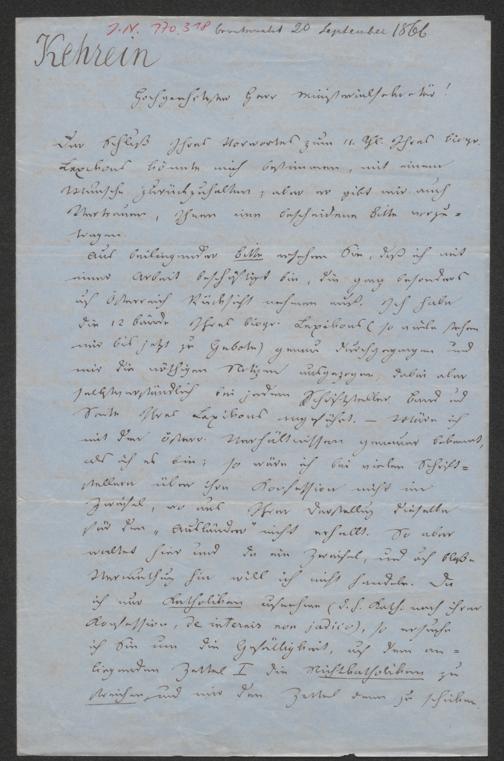 J.N. 170.318 beantwortet 20 September 1866
Kehrein
Hochgeehrtester Herr Ministerialsekretär!
Der Schluß Ihres Vorwortes zum 11. Th. Ihres biogr.
Lexikons könnte mich bestimmen, mit einem
Wunsche zurückzuhalten; aber er gibt mir auch
Vertrauen, Ihnen eine bescheidene Bitte vorzu-
tragen.
Aus beiliegender Bitte ersehen Sie, daß ich mit
einer Arbeit beschäftigt bin, die ganz besonders
auf Österreich Rücksicht nehmen muß. Ich habe
die 12 Bände Ihres biogr. Lexikons (so viele stehen
mir bis jetzt zu Gebote) genau durchgegangen und
mir die nöthigen Notizen ausgezogen, dabei aber
selbstverständlich bei jedem Schriftsteller Band und
Seite Ihres Lexikons angeführt. — Wäre ich
mit den österr. Verhältnissen genauer bekannt,
als ich es bin, so wäre ich bei vielen Schrift-
stellern über ihre Konfession nicht im
Zweifel, wo aus Ihrer Darstellung dieselbe
für den „Ausländer" nicht erhellt. So aber
waltet hier und da ein Zweifel, und auf bloße
Vermuthung hin will ich nicht handeln. Da
ich nur Katholiken aufnehme (d. h. Kath. nach ihrer
Konfession, de internis non judico), so ersuche
ich Sie um die Gefälligkeit, auf dem an-
liegenden Zettel I die Nichtkatholiken zu
streichen und mir den Zettel dann zu schicken.